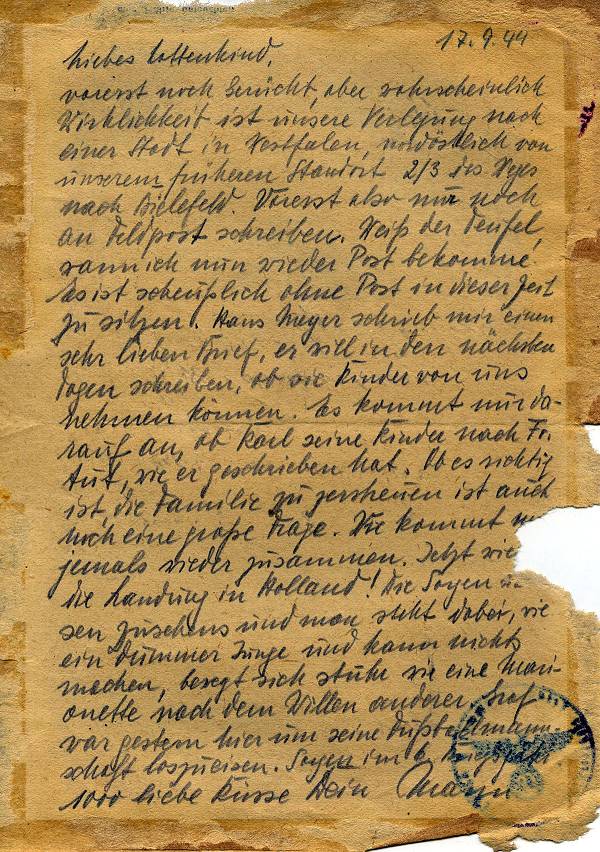 17.9.44
Liebes Lottenkind,
vorerst noch Gerücht, aber wahrscheinlich
Wirklichkeit ist unsere Verlegung nach
einer Stadt in Westfalen, nordöstlich von
unserem früheren Standort 2/3 des Weges
nach Bielefeld. Vorerst also nur noch
an Feldpost schreiben. Weiß der Teufel,
wann ich nun wieder Post bekomme!
Es ist scheußlich ohne Post in dieser Zeit
zu sitzen. Hans Meyer schrieb mir einen
sehr lieben Brief, er will in den nächsten
Tagen schreiben, ob sie Kinder von uns
nehmen können. Es kommt nur da-
rauf an, ob Karl seine Kinder nach Fr.
tut, wie er geschrieben hat. Ob es richtig
ist, die Familie zu zerstreuen ist auch
noch eine große Frage. Wie kommt
jemals wieder zusammen. Jetzt wie
die Landung in Holland! Die Sorgen
sen zusehens und man steht dabei, wie
ein dummer Junge und kann nichts
machen, bewegt sich stur wie eine Mari-
onette nach dem Willen anderer. Graf
war gestern hier um seine Fußballmann-
schaft loszueisen. Sorgen im 6. Kriegsjahr
1000 liebe Küsse Dein